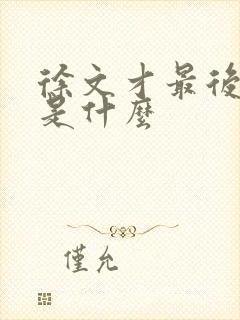 徐文才最後
是什麼
僅允